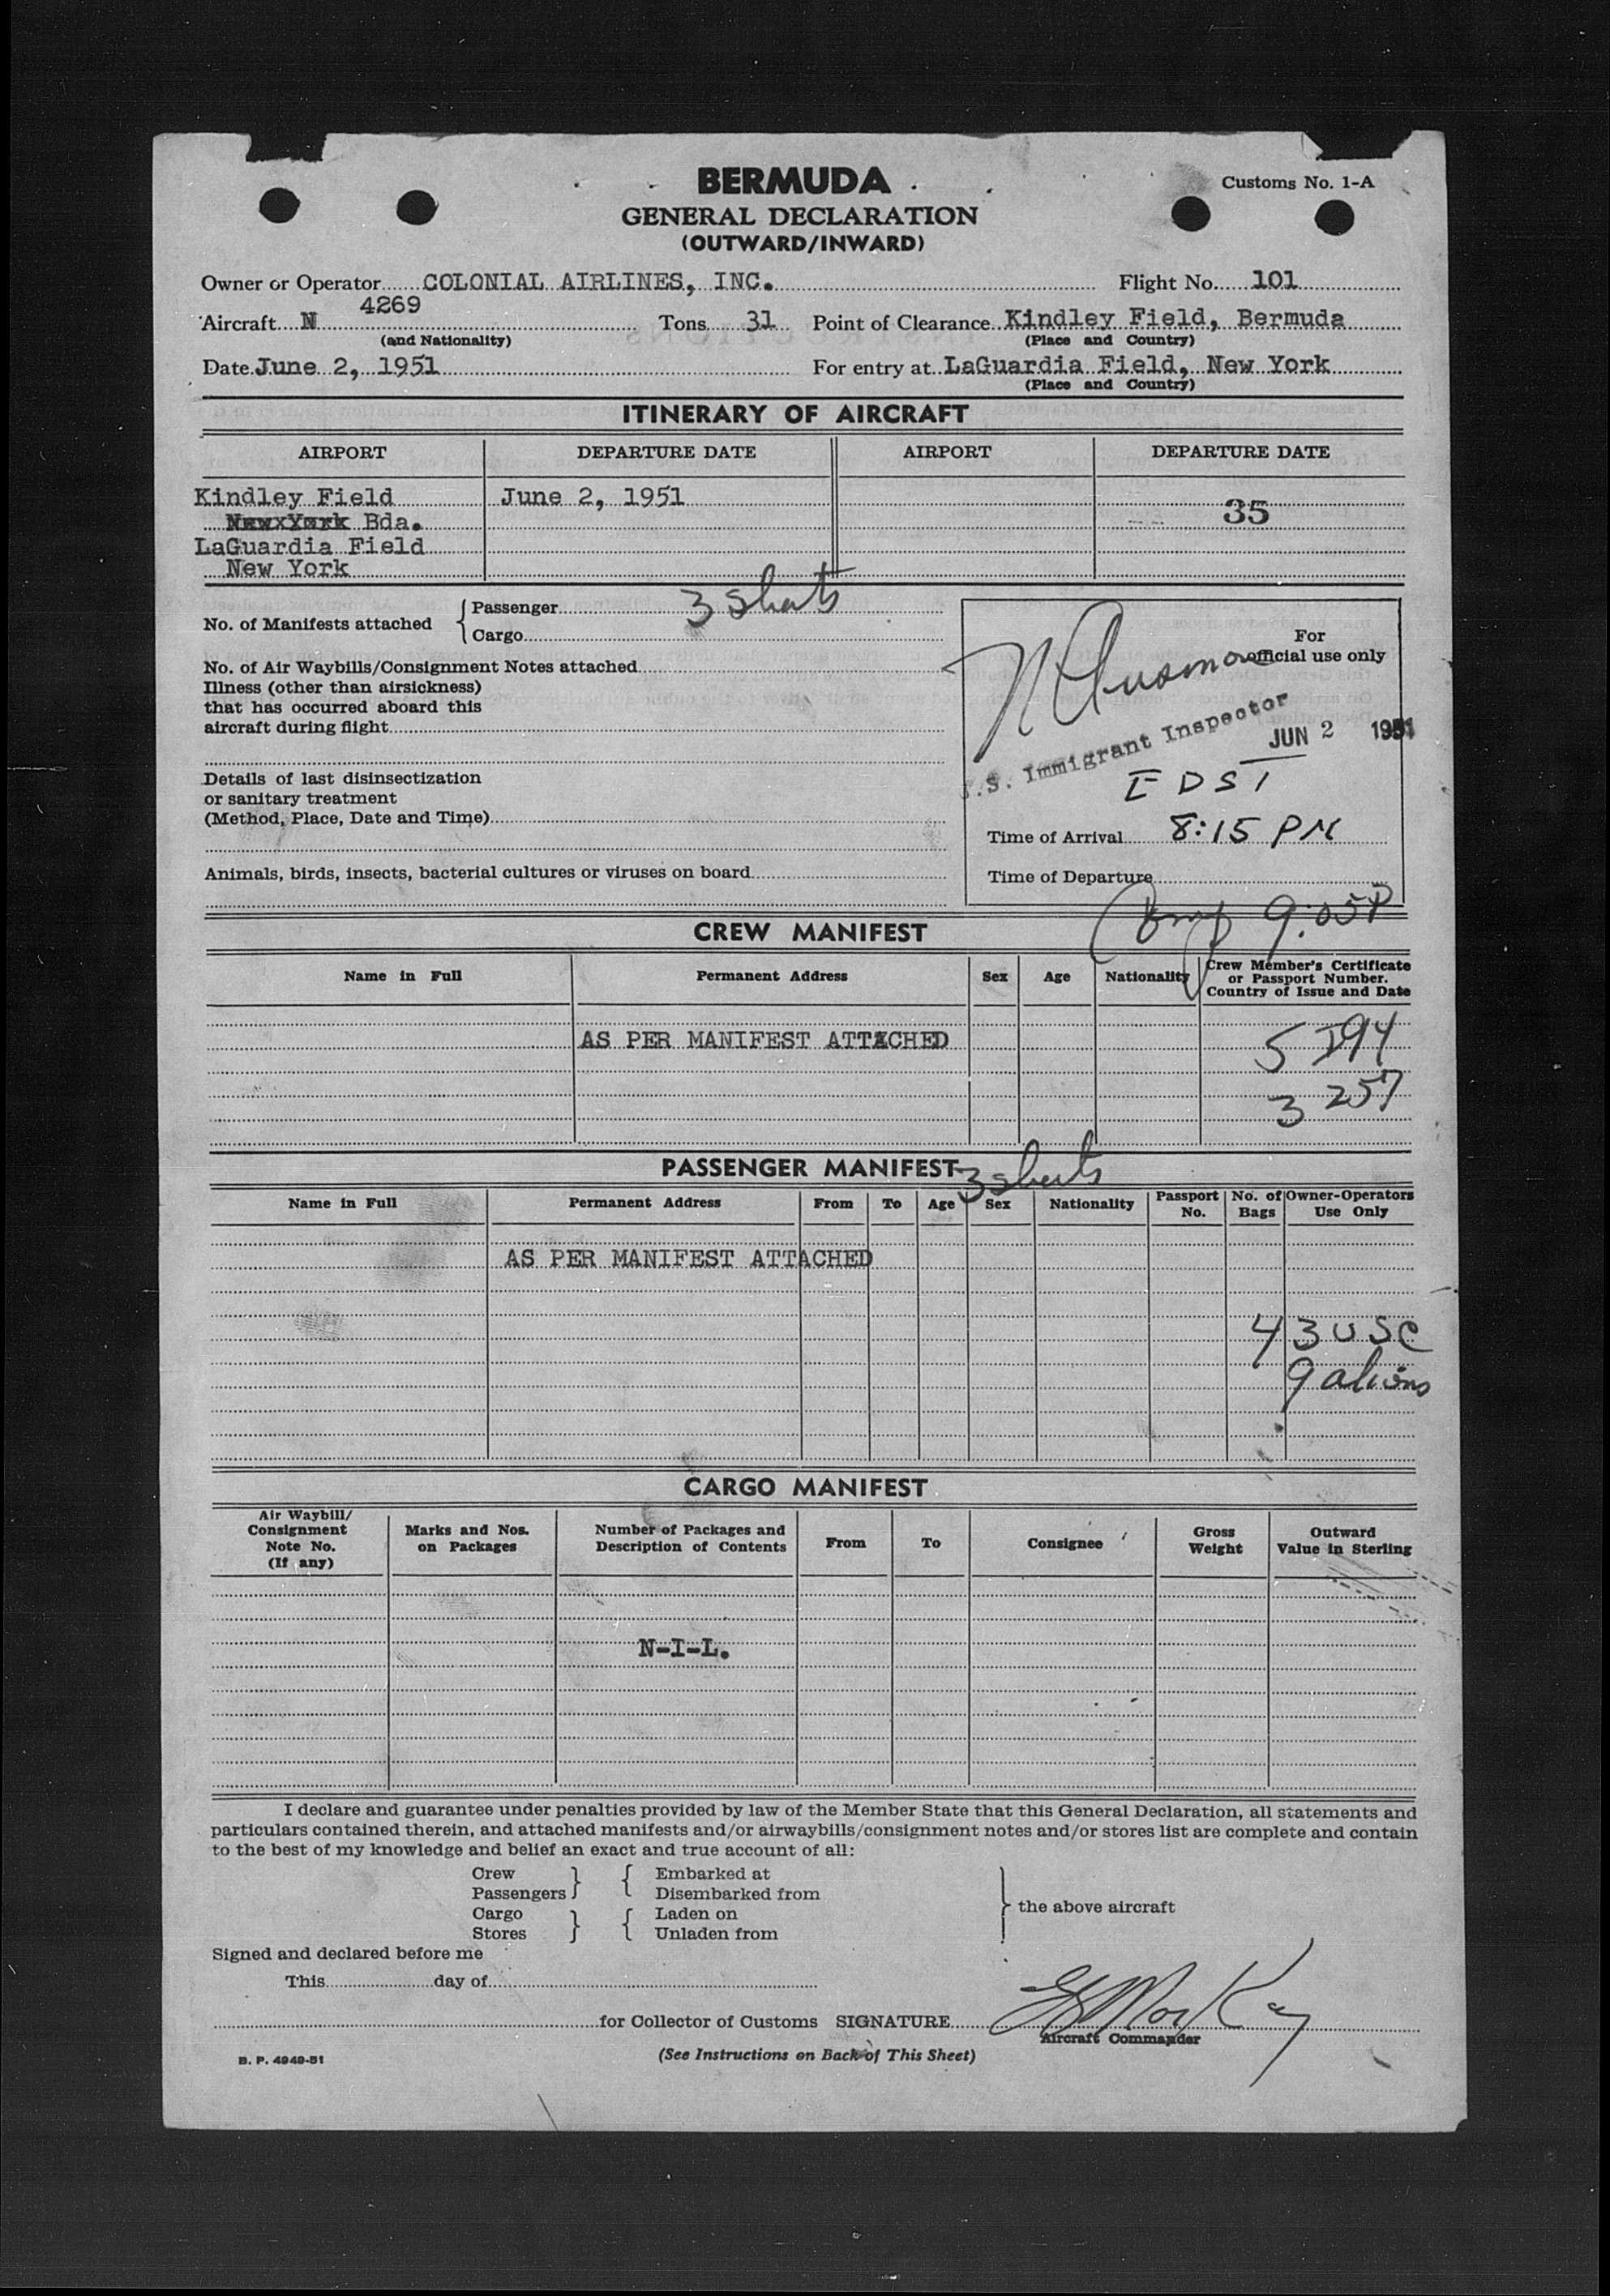 BERMUDA
Customs No. 1-A
GENERAL DECLARATION
(OUTWARD/INWARD)
Owner or Operator COLONIAL AIRLINES, INC. Flight No. 101
Aircraft N 4269 Tons 31 Point of Clearance Kindley Field, Bermuda
(and Nationality) (Place and Country)
Date June 2, 1951 For entry at LaGuardia Field, New York
(Place and Country)
ITINERARY OF AIRCRAFT
AIRPORT DEPARTURE DATE AIRPORT DEPARTURE DATE
Kindley Field June 2, 1951
Bda. 35
LaGuardia Field
New York
No. of Manifests attached { Passenger 3 sheets
Cargo
For official use only
No. of Air Waybills/Consignment Notes attached
Illness (other than airsickness)
that has occurred aboard this
aircraft during flight
U.S. Immigrant Inspector
JUN 2 1951
EDST
Details of last disinsectization
or sanitary treatment
(Method, Place, Date and Time)
Time of Arrival 8:15 PM
Animals, birds, insects, bacterial cultures or viruses on board
Time of Departure
9:05P
CREW MANIFEST
Name in Full Permanent Address Sex Age Nationality Crew Member's Certificate or Passport Number. Country of Issue and Date
AS PER MANIFEST ATTACHED
5 I94
3 257
PASSENGER MANIFEST 3 sheets
Name in Full Permanent Address From To Age Sex Nationality Passport No. No. of Bags Owner-Operators Use Only
AS PER MANIFEST ATTACHED
43 USC
9 aliens
CARGO MANIFEST
Air Waybill/ Consignment Note No. (If any) Marks and Nos. on Packages Number of Packages and Description of Contents From To Consignee Gross Weight Outward Value in Sterling
N-I-L.
I declare and guarantee under penalties provided by law of the Member State that this General Declaration, all statements and
particulars contained therein, and attached manifests and/or airwaybills/consignment notes and/or stores list are complete and contain
to the best of my knowledge and belief an exact and true account of all:
Crew } { Embarked at
Passengers } { Disembarked from
} the above aircraft
Cargo } { Laden on
Stores } { Unladen from
Signed and declared before me
This day of
for Collector of Customs SIGNATURE
Aircraft Commander
B. P. 4949-51
(See Instructions on Back of This Sheet)